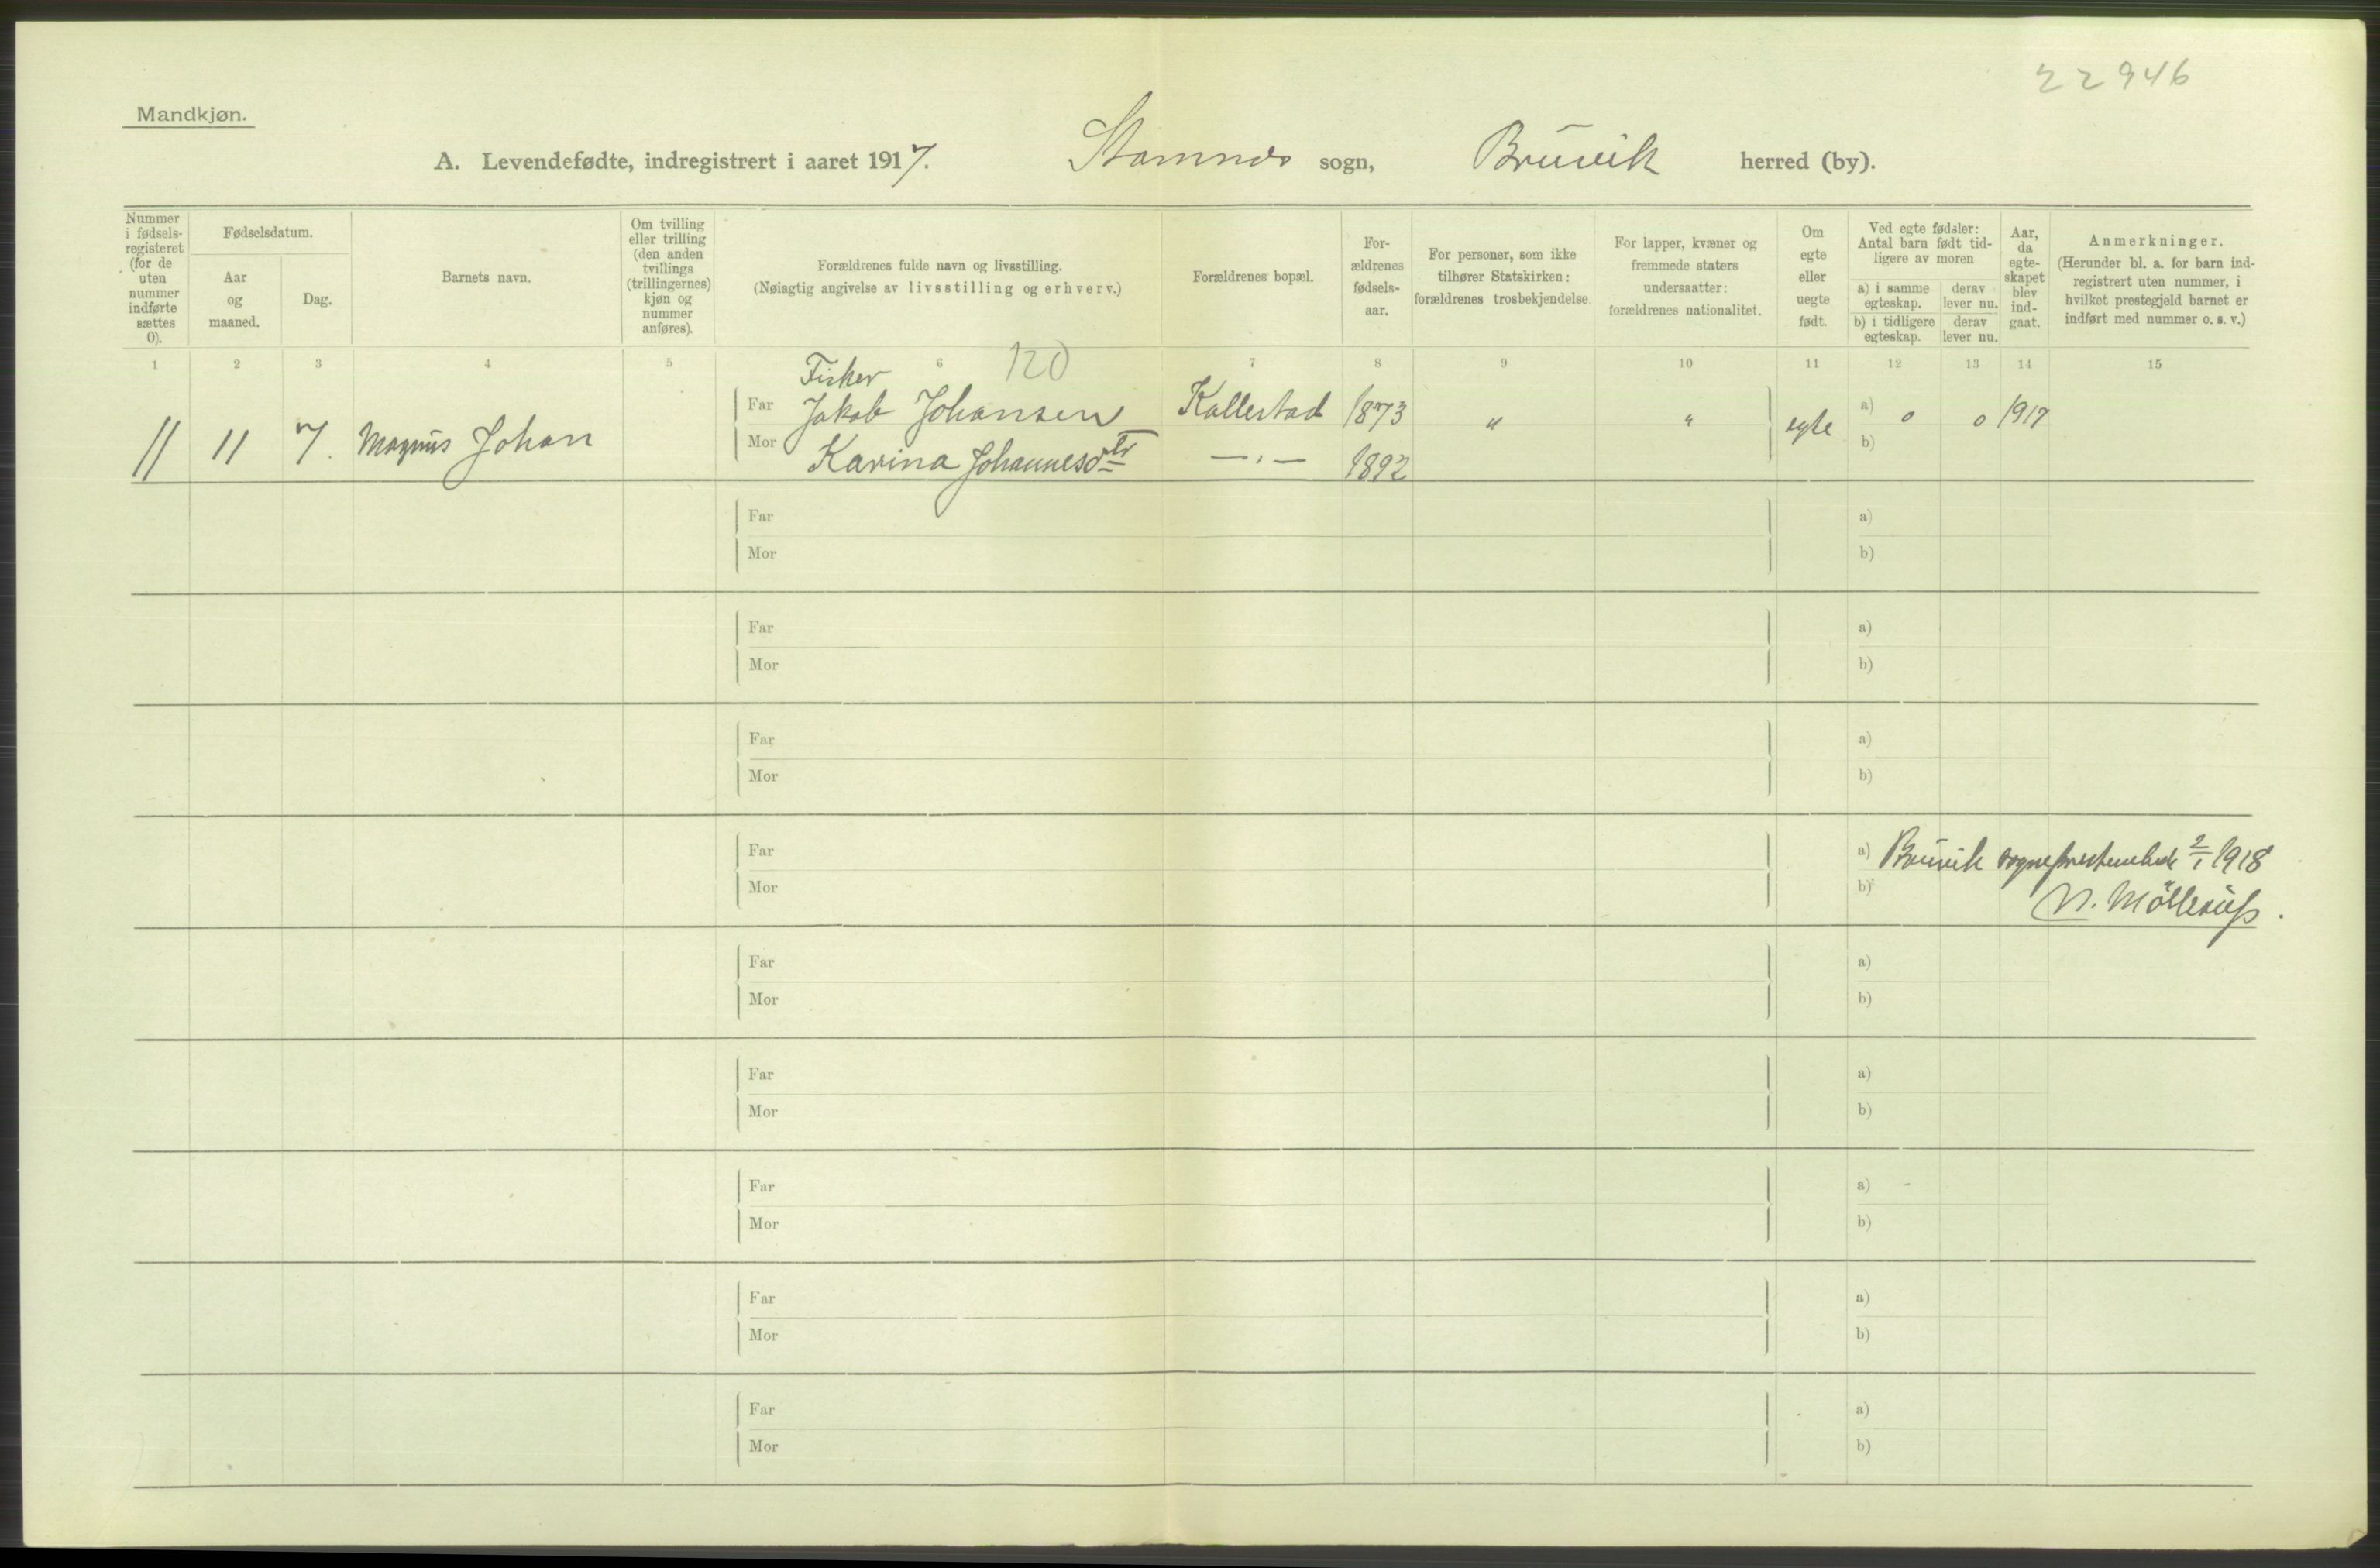 22946
Mandkjøn.
A. Levendefødte, indregistrert i aaret 1917. Stamnes sogn, Bruvik herred (by).
Nummer i fødsels-registeret (for de uten nummer indførte sættes 0).
Fødselsdatum.
Aar og maaned.
Dag.
Barnets navn.
Om tvilling eller trilling (den anden tvillings (trillingernes) kjøn og nummer anføres).
Forældrenes fulde navn og livsstilling.
(Nøiagtig angivelse av livsstilling og erhverv.)
Forældrenes bopæl.
For-ældrenes fødsels-aar.
For personer, som ikke tilhører Statskirken: forældrenes trosbekjendelse.
For lapper, kvæner og fremmede staters undersaatter: forældrenes nationalitet.
Om egte eller uegte født.
Ved egte fødsler: Antal barn født tid-ligere av moren
a) i samme egteskap.
derav lever nu.
b) i tidligere egteskap.
derav lever nu.
Aar, da egte-skapet blev ind-gaat.
Anmerkninger.
(Herunder bl. a. for barn ind-registrert uten nummer, i hvilket prestegjeld barnet er indført med nummer o. s. v.)
1 2 3 4 5 6 7 8 9 10 11 12 13 14 15
120
Fisker
11 11 7. Magnus Johan Far Jakob Johansen Kallestad 1873 " " egte a) 0 0 1917
Mor Karina Johannesdtr —"— 1892 b)
Far a)
Mor b)
Far a)
Mor b)
Far a)
Mor b)
Far a) Bruvik sogneprestembede 2/1 1918
Mor b) N. Möllerup.
Far a)
Mor b)
Far a)
Mor b)
Far a) -
Mor b)
Far a)
Mor b)
Far a)
Mor b)